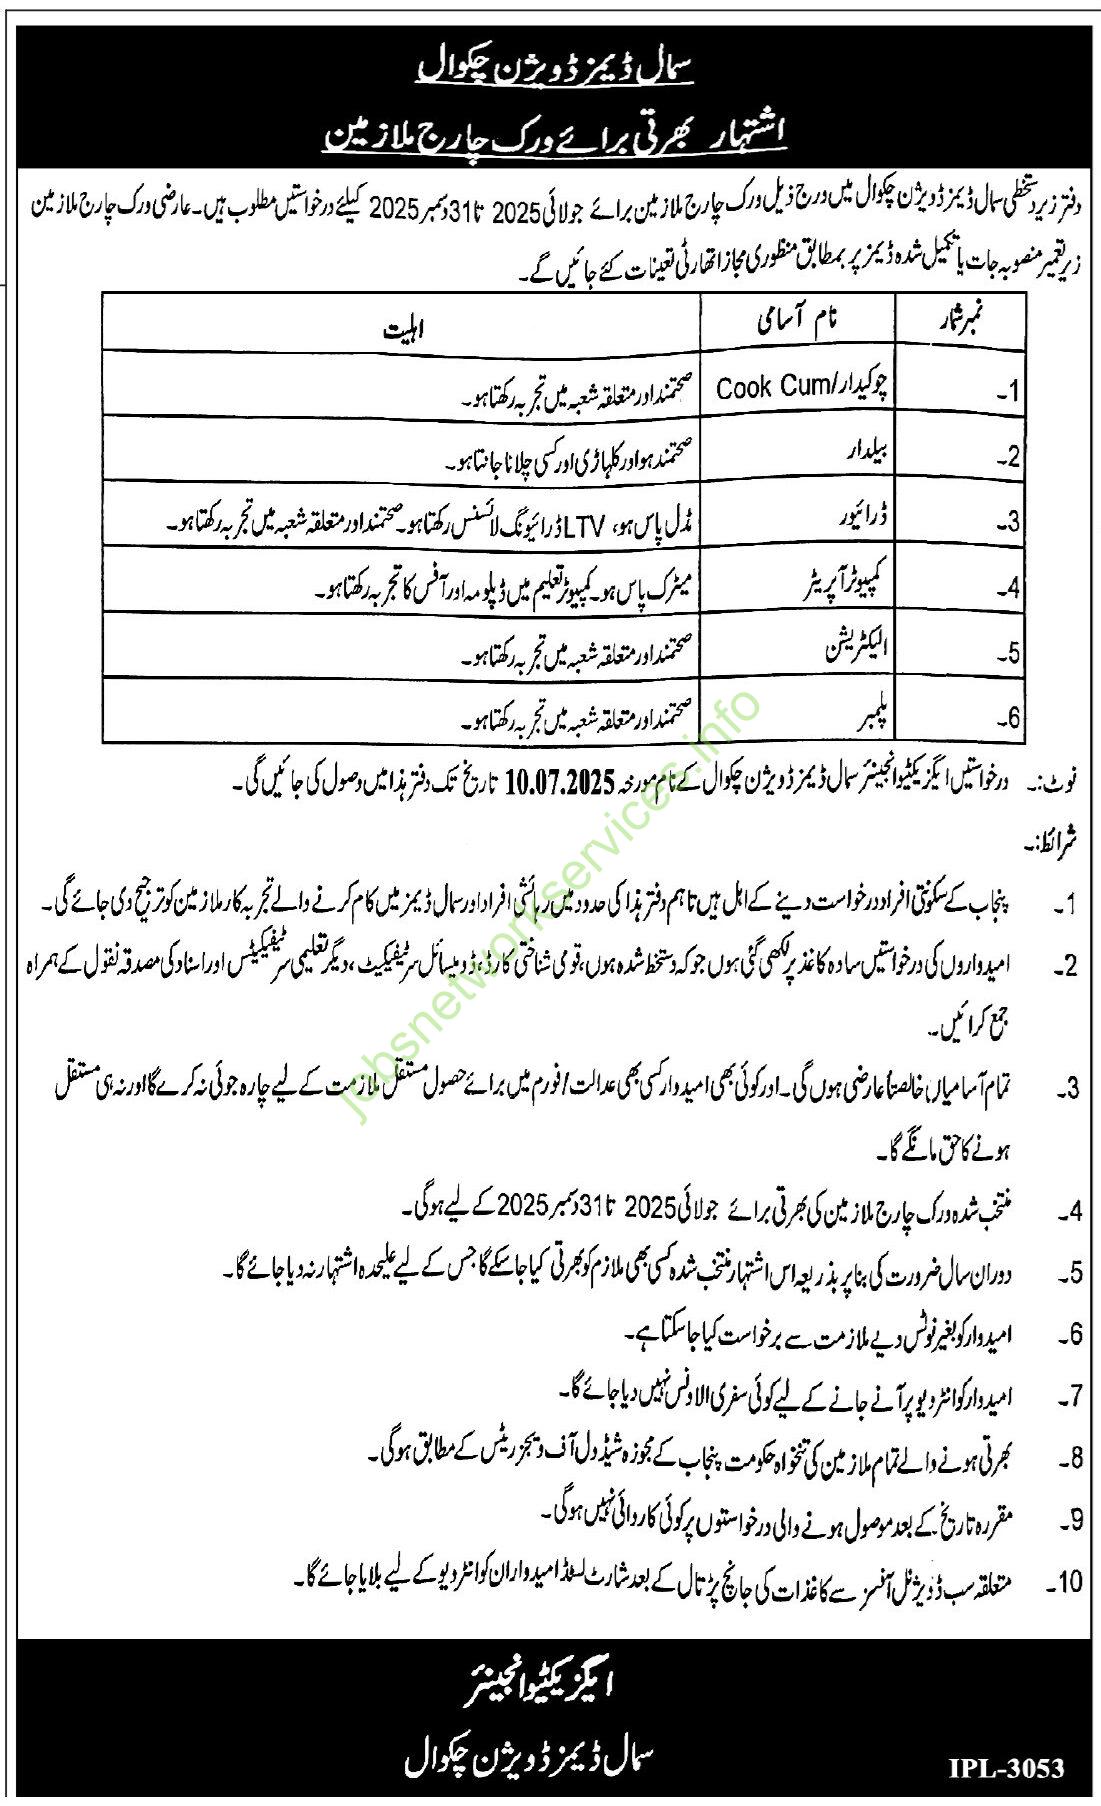 سمال ڈیمز ڈویژن چکوال
اشتہار بھرتی برائے ورک چارج ملازمین
دفتر زیر دستخطی سمال ڈیمز ڈویژن چکوال میں درج ذیل ورک چارج ملازمین برائے جولائی 2025 تا 31 دسمبر 2025 کیلئے درخواستیں مطلوب ہیں۔ عارضی ورک چارج ملازمین
زیر تعمیر منصوبہ جات یا تکمیل شدہ ڈیمز پر بمطابق منظوری مجاز اتھارٹی تعینات کئے جائیں گے۔
نمبر شمار نام آسامی اہلیت
1۔ چوکیدار/Cook Cum صحتمند اور متعلقہ شعبہ میں تجربہ رکھتا ہو۔
2۔ بیلدار صحتمند ہو اور کلہاڑی اور کسی چلانا جانتا ہو۔
3۔ ڈرائیور مڈل پاس ہو، LTV ڈرائیونگ لائسنس رکھتا ہو۔ صحتمند اور متعلقہ شعبہ میں تجربہ رکھتا ہو۔
4۔ کمپیوٹر آپریٹر میٹرک پاس ہو۔ کمپیوٹر تعلیم میں ڈپلومہ اور آفس کا تجربہ رکھتا ہو۔
5۔ الیکٹریشن صحتمند اور متعلقہ شعبہ میں تجربہ رکھتا ہو۔
6۔ پلمبر صحتمند اور متعلقہ شعبہ میں تجربہ رکھتا ہو۔
نوٹ:۔ درخواستیں ایگزیکٹیو انجینئر سمال ڈیمز ڈویژن چکوال کے نام مورخہ 10.07.2025 تاریخ تک دفتر ہذا میں وصول کی جائیں گی۔
شرائط:۔
1۔ پنجاب کے سکونتی افراد درخواست دینے کے اہل ہیں تاہم دفتر ہذا کی حدود میں رہائشی افراد اور سمال ڈیمز میں کام کرنے والے تجربہ کار ملازمین کو ترجیح دی جائے گی۔
2۔ امیدواروں کی درخواستیں سادہ کاغذ پر لکھی گئی ہوں جو کہ دستخط شدہ ہوں، قومی شناختی کارڈ، ڈومیسائل سرٹیفکیٹ، دیگر تعلیمی سرٹیفکیٹس اور اسناد کی مصدقہ نقول کے ہمراہ
جمع کرائیں۔
3۔ تمام آسامیاں خالصتاً عارضی ہوں گی۔ اور کوئی بھی امیدوار کسی بھی عدالت/فورم میں برائے حصول مستقل ملازمت کے لیے چارہ جوئی نہ کرے گا اور نہ ہی مستقل
ہونے کا حق مانگے گا۔
4۔ منتخب شدہ ورک چارج ملازمین کی بھرتی برائے جولائی 2025 تا 31 دسمبر 2025 کے لیے ہو گی۔
5۔ دوران سال ضرورت کی بنا پر بذریعہ اس اشتہار منتخب شدہ کسی بھی ملازم کو بھرتی کیا جا سکے گا جس کے لیے علیحدہ اشتہار نہ دیا جائے گا۔
6۔ امیدوار کو بغیر نوٹس دیے ملازمت سے برخواست کیا جا سکتا ہے۔
7۔ امیدوار کو انٹرویو پر آنے جانے کے لیے کوئی سفری الاونس نہیں دیا جائے گا۔
8۔ بھرتی ہونے والے تمام ملازمین کی تنخواہ حکومت پنجاب کے مجوزہ شیڈول آف ویجز ریٹس کے مطابق ہو گی۔
9۔ مقررہ تاریخ کے بعد موصول ہونے والی درخواستوں پر کوئی کاروائی نہیں ہو گی۔
10۔ متعلقہ سب ڈویژنل آفسز سے کاغذات کی جانچ پڑتال کے بعد شارٹ لسٹڈ امیدواران کو انٹرویو کے لیے بلایا جائے گا۔
ایگزیکٹیو انجینئر
سمال ڈیمز ڈویژن چکوال
IPL-3053
jobsnetworkservices.info